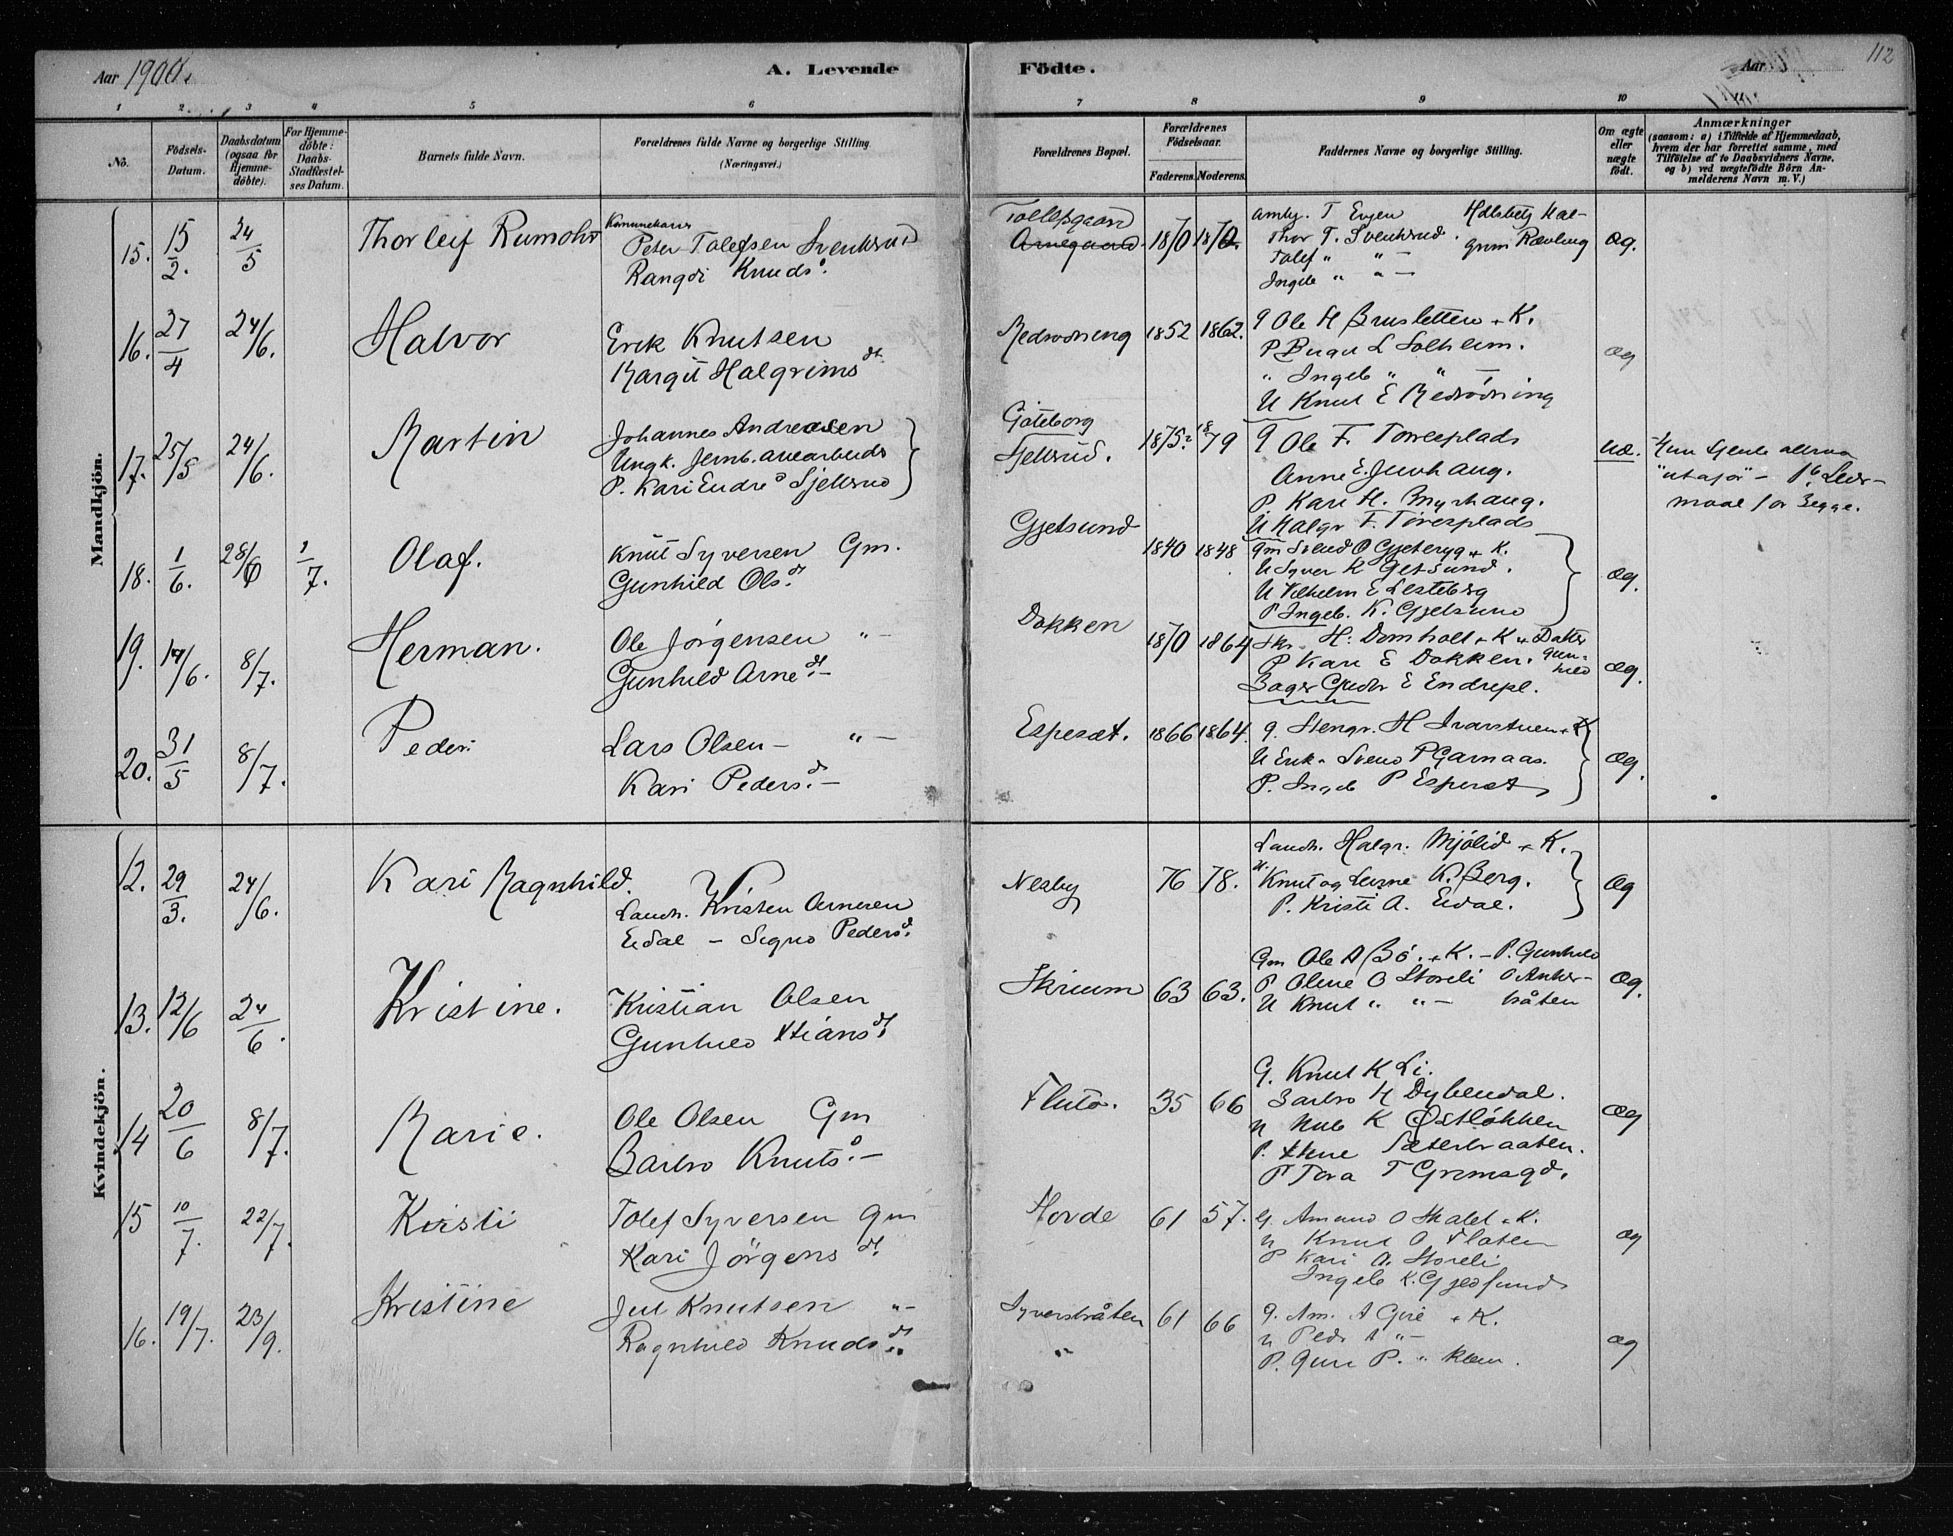 Aar 1900.
A. Levende Födte.
Aar
112
1 2 3 4 5 6 7 8 9 10 11
No.
Födsels-Datum.
Daabsdatum (ogsaa for Hjemme-döbte).
For Hjemme-döbte: Daabs-Stadfæstel-ses Datum.
Barnets fulde Navn.
Forældrenes fulde Navne og borgerlige Stilling (Næringsvei.)
Forældrenes Bopæl.
Forældrenes Födselsaar.
Faderens. Moderens.
Faddernes Navne og borgerlige Stilling.
Om ægte eller uægte födt.
Anmærkninger
(saasom: a) i Tilfælde af Hjemmedaab,
hvem der har forrettet samme, med
Tilföielse af to Daabsvidners Navne,
og b) ved uægtefödte Börn An-
melderens Navn m. V.)
Mandkjön.
15. 15/2. 24/5 Thorleif Rumohr
Peter Tolefsen Svenksrud
Rangdi Knudsd.
Tollefsgaard
Arnegaard. 1870 1870.
T Evjen
Thor T. Svenksrud.
Tolef " " –
Ingeb " " –
æg.
16. 27/4 24/6. Halvor
Erik Knutsen
Margit Halgrimsdt
1852 1862.
G Ole H Brusletten + K.
P L Solheim.
" Ingeb " "
U Knut E
æg
17. 25/5 24/6. Martin
Johannes Andreasen
Ungk.
P. Kari Endred Sjellsrud
Göteborg
Sjellsrud. 1875? 1879
G Ole F. Torresplads
Anne E. Juvhaug.
P. Kari H. Myrhaug.
U Halgr F. Torresplads
uæ.
for Begge.
18. 1/6. 28/6 1/7. Olaf.
Knut Syversen Gm.
Gunhild Olsdt
Gjetsund
1840 1848
Gm Svend O + K.
U Syver K Getsund.
U Vilhelm E Lesteberg
P Ingeb. K. Gjetsund
æg.
19. 14/6. 8/7. Herman.
Ole Jörgensen " –
Gunhild Arnedt –
Dokken
1870 1864
H. Domholt + K + Datter Gunhild
P Kari E Dokken.
Bager E Endrepl.
æg.
20. 31/5 8/7. Peder
Lars Olsen – " –
Kari Pedersd. –
Espeset. 1866 1864.
G. Stengr. H Ivarstuen + K
U Erik + Svend P Garnaas.
P. Ingeb P Espeset
æg.
Kvindekjön.
12. 29/3. 24/6. Kari Ragnhild.
Landh. Kristen Arnesen
Eidal – Signe Pedersd.
Nesby 76 78.
Landh. Halgr. Mjölid + K.
U. Knut og K. Berg.
P. Kristi A. Eidal.
æg
13. 12/6 24/6. Kristine.
Kristian Olsen
Gunhild Xtiansdt
Skrium 63 63.
Gm Ole A Bö. + K. – P. Gunhild
P Oline O Storeli O Anker-
U Knut " " – bråten
æg.
14 20/6 8/7. Marie.
Ole Olsen Gm
Barbro Knutsd. –
35 66
G. Knut K Li.
Barbro H Dybendal.
U Nub K Östlökken
P. Sæterbraaten.
P Tora T Gromsgd.
æg
15 10/7. 22/7. Kristi
Tolef Syversen Gm
Kari Jörgensdt.
Hovde 61 57.
G. Amund O Skalet + K.
U Knut O Flaten
P Kari A. Storeli
Ingeb K. Gjedsund
æg
16. 19/7. 23/9. Kristine
Jul Knutsen " –
Ragnhild Knudsdt.
Syverbråten 61 66
" –
G. Am. A Gire + K.
U Peder A " –
P. Guri P. "
æg